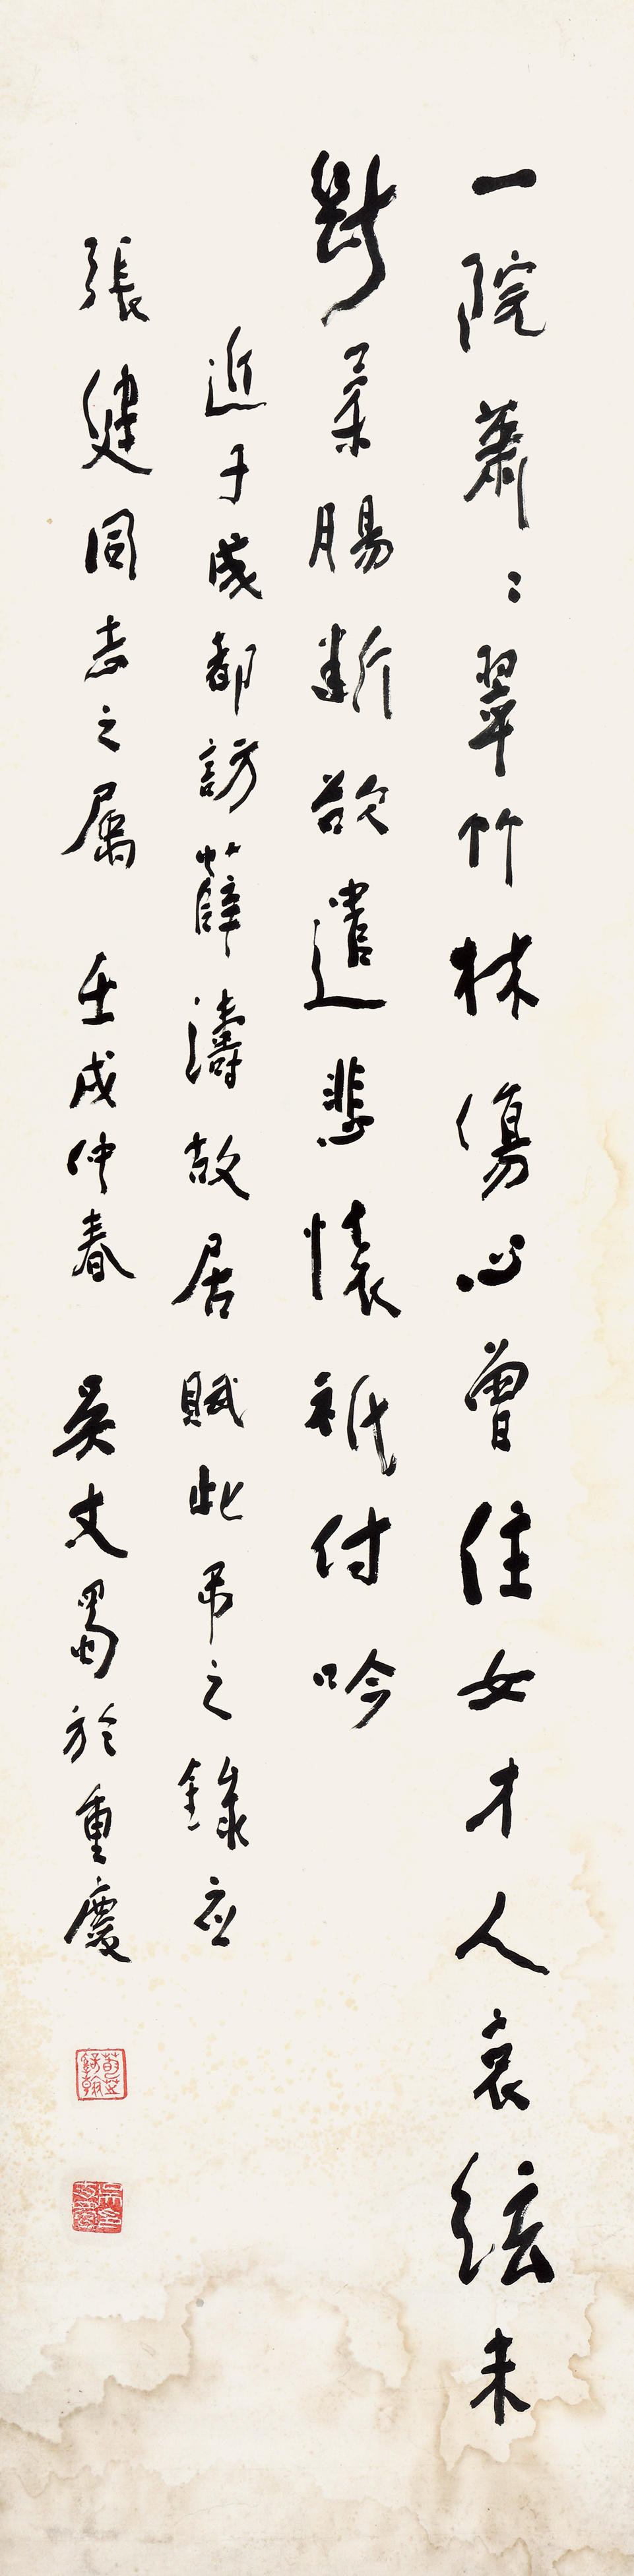 一院蕭〻翠竹林傷心曾住女才人哀絃未
斷柔腸断欲遣悲懷祇付吟
近于成都訪薛濤故居賦此吊之錄应
張健同志之屬 壬戌仲春 吳丈蜀於重慶